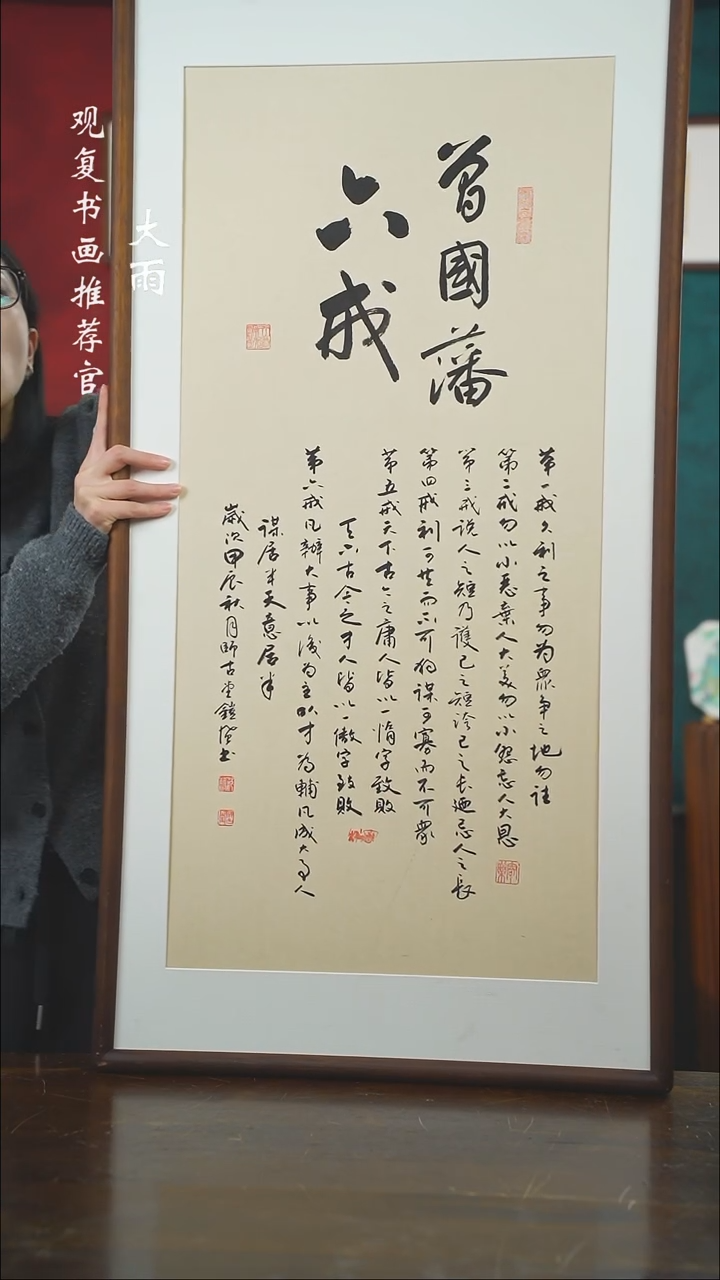 观复书画推荐官
大雨
曾國藩
六戒
第一戒久利之事勿为眾争之地勿往
第二戒勿以小恶棄人大美勿以小怨忘人大恩
第三戒说人之短乃護己之短誇己之长廼忌人之長
第四戒利可共而不可独谋可寡而不可眾
第五戒天下古今之庸人皆以一惰字致败
天下古今之才人皆以一傲字致败
第六戒凡辦大事以識为主以才为輔凡成大事人
谋居半天意居半
歲次甲辰秋月師古堂鎧
书